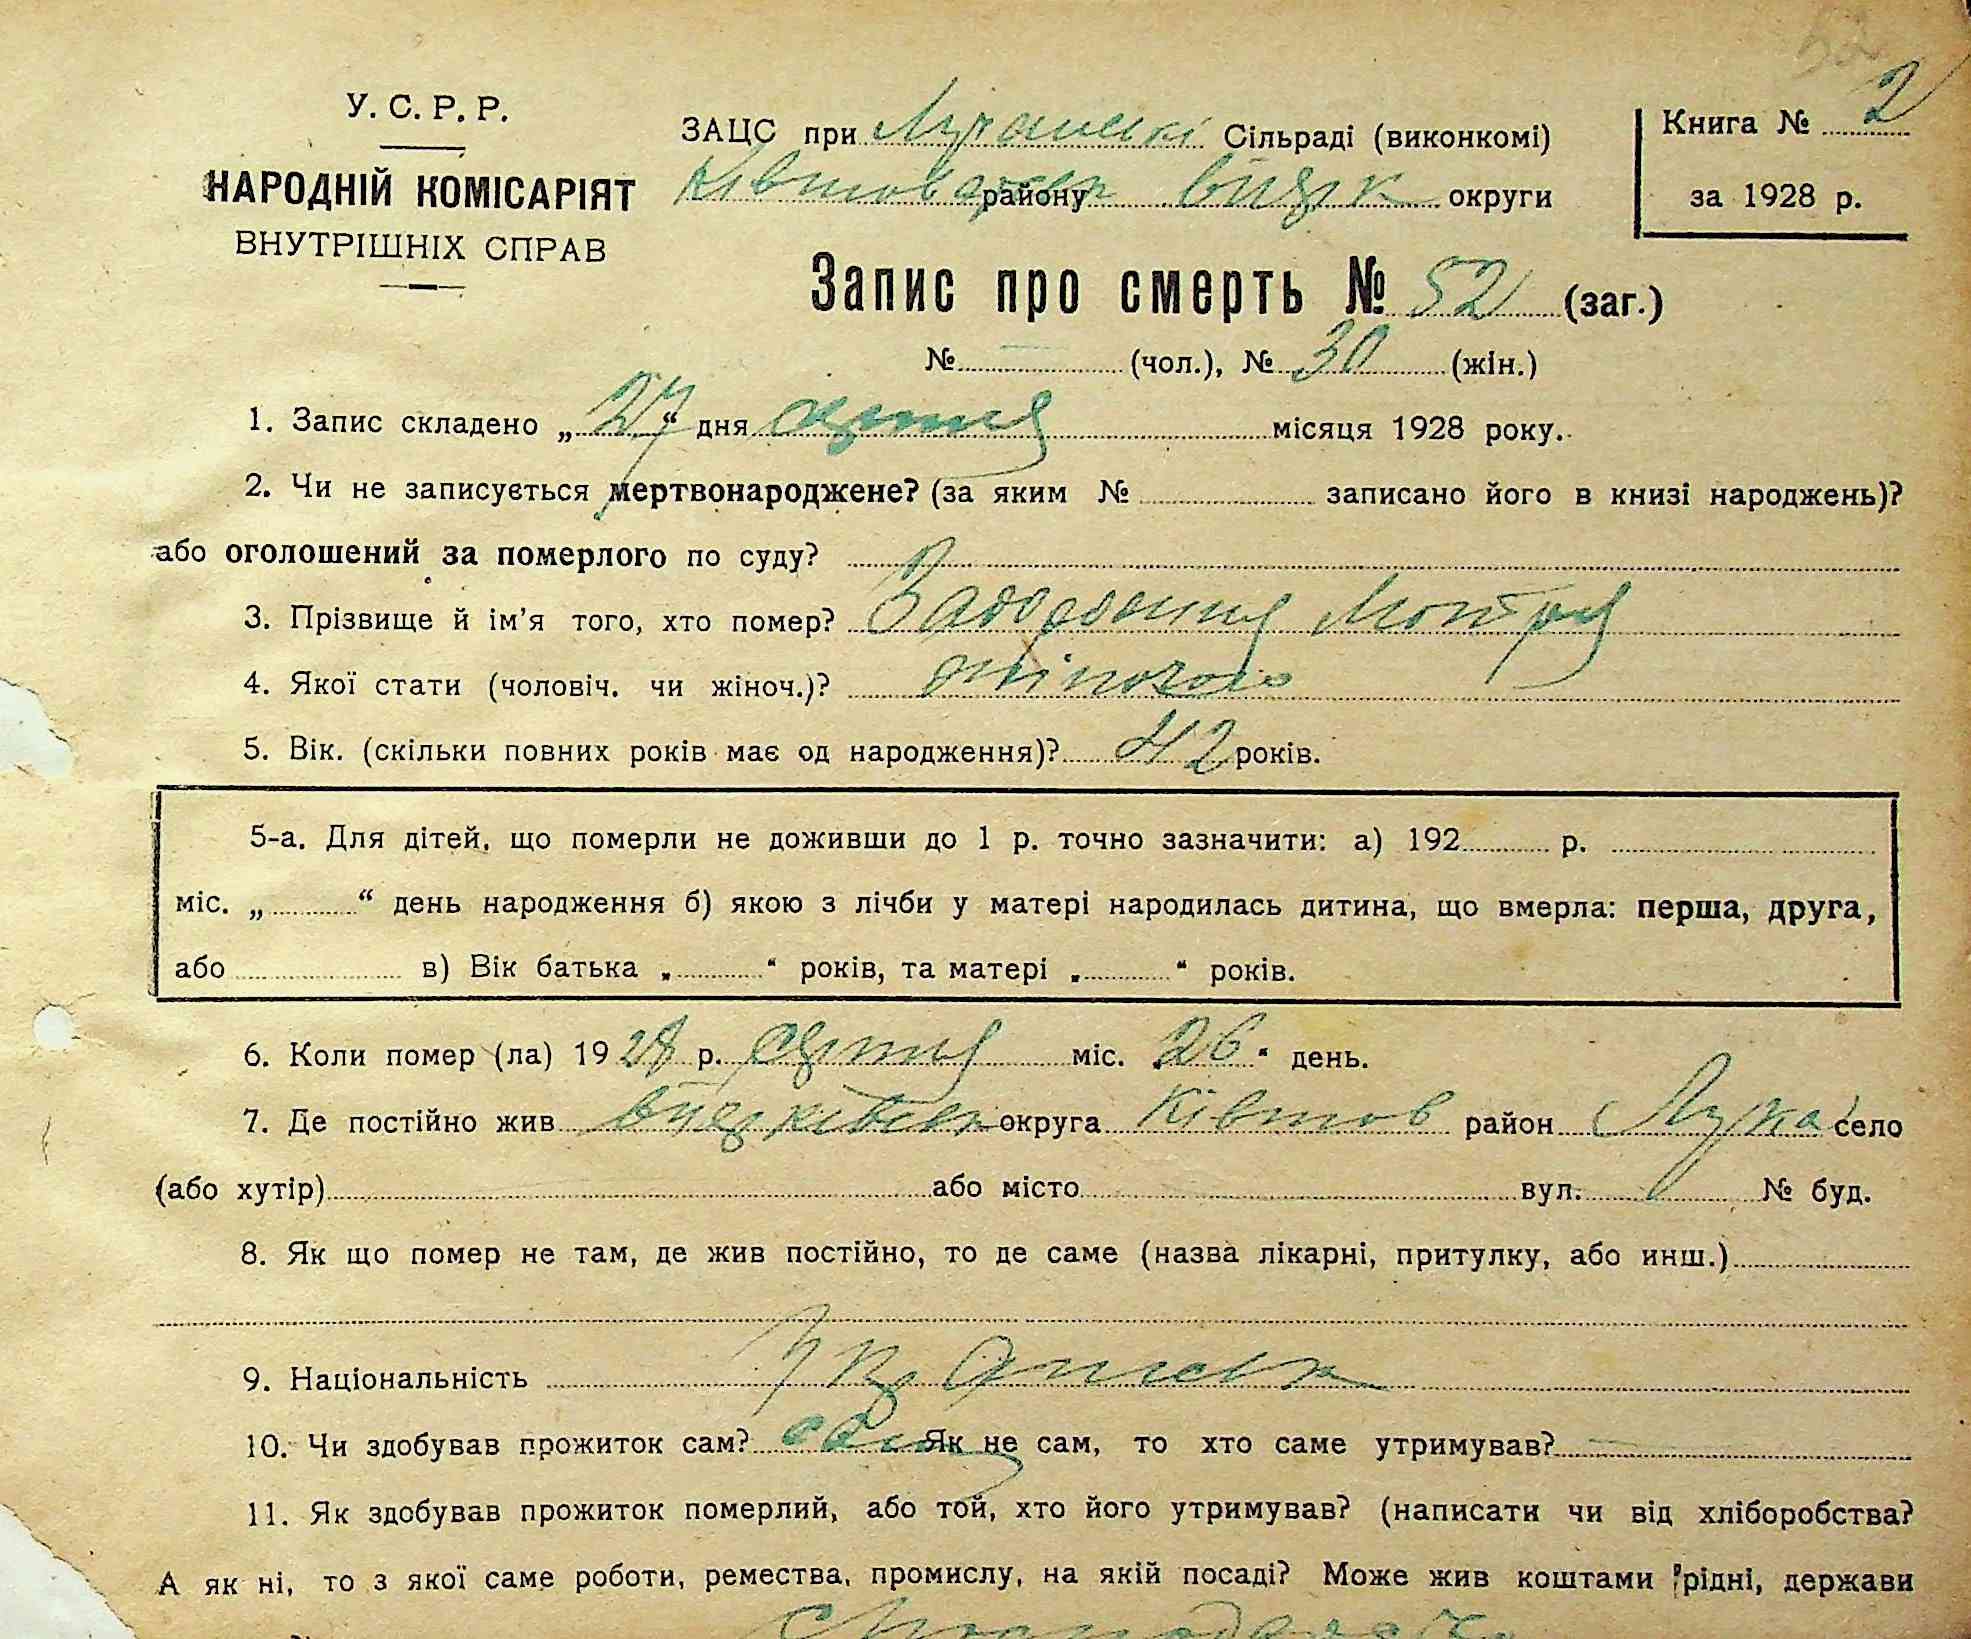 52
У. С. Р. Р.
НАРОДНІЙ КОМІСАРІЯТ
ВНУТРІШНІХ СПРАВ
ЗАЦС при Лучанські Сільраді (виконкомі)
району округи
Книга № 2
за 1928 р.
Запис про смерть № 52 (заг.)
№ — (чол.), № 30 (жін.)
1. Запис складено „27“ дня серпня місяця 1928 року.
2. Чи не записується мертвонароджене? (за яким № записано його в книзі народжень)?
або оголошений за померлого по суду?
3. Прізвище й ім'я того, хто помер? Мотря
4. Якої стати (чоловіч. чи жіноч.)? жіночого
5. Вік. (скільки повних років має од народження)? 42 років.
5-а. Для дітей, що померли не доживши до 1 р. точно зазначити: а) 192 р.
міс. „ “ день народження б) якою з лічби у матері народилась дитина, що вмерла: перша, друга,
або в) Вік батька „ “ років, та матері „ “ років.
6. Коли помер (ла) 1928 р. серпня міс. „26“ день.
7. Де постійно жив округа Ківшов район Лука село
(або хутір) або місто вул. № буд.
8. Як що помер не там, де жив постійно, то де саме (назва лікарні, притулку, або инш.)
9. Національність
10. Чи здобував прожиток сам? Як не сам, то хто саме утримував? —
11. Як здобував прожиток померлий, або той, хто його утримував? (написати чи від хліборобства?
А як ні, то з якої саме роботи, ремества, промислу, на якій посаді? Може жив коштами рідні, держави